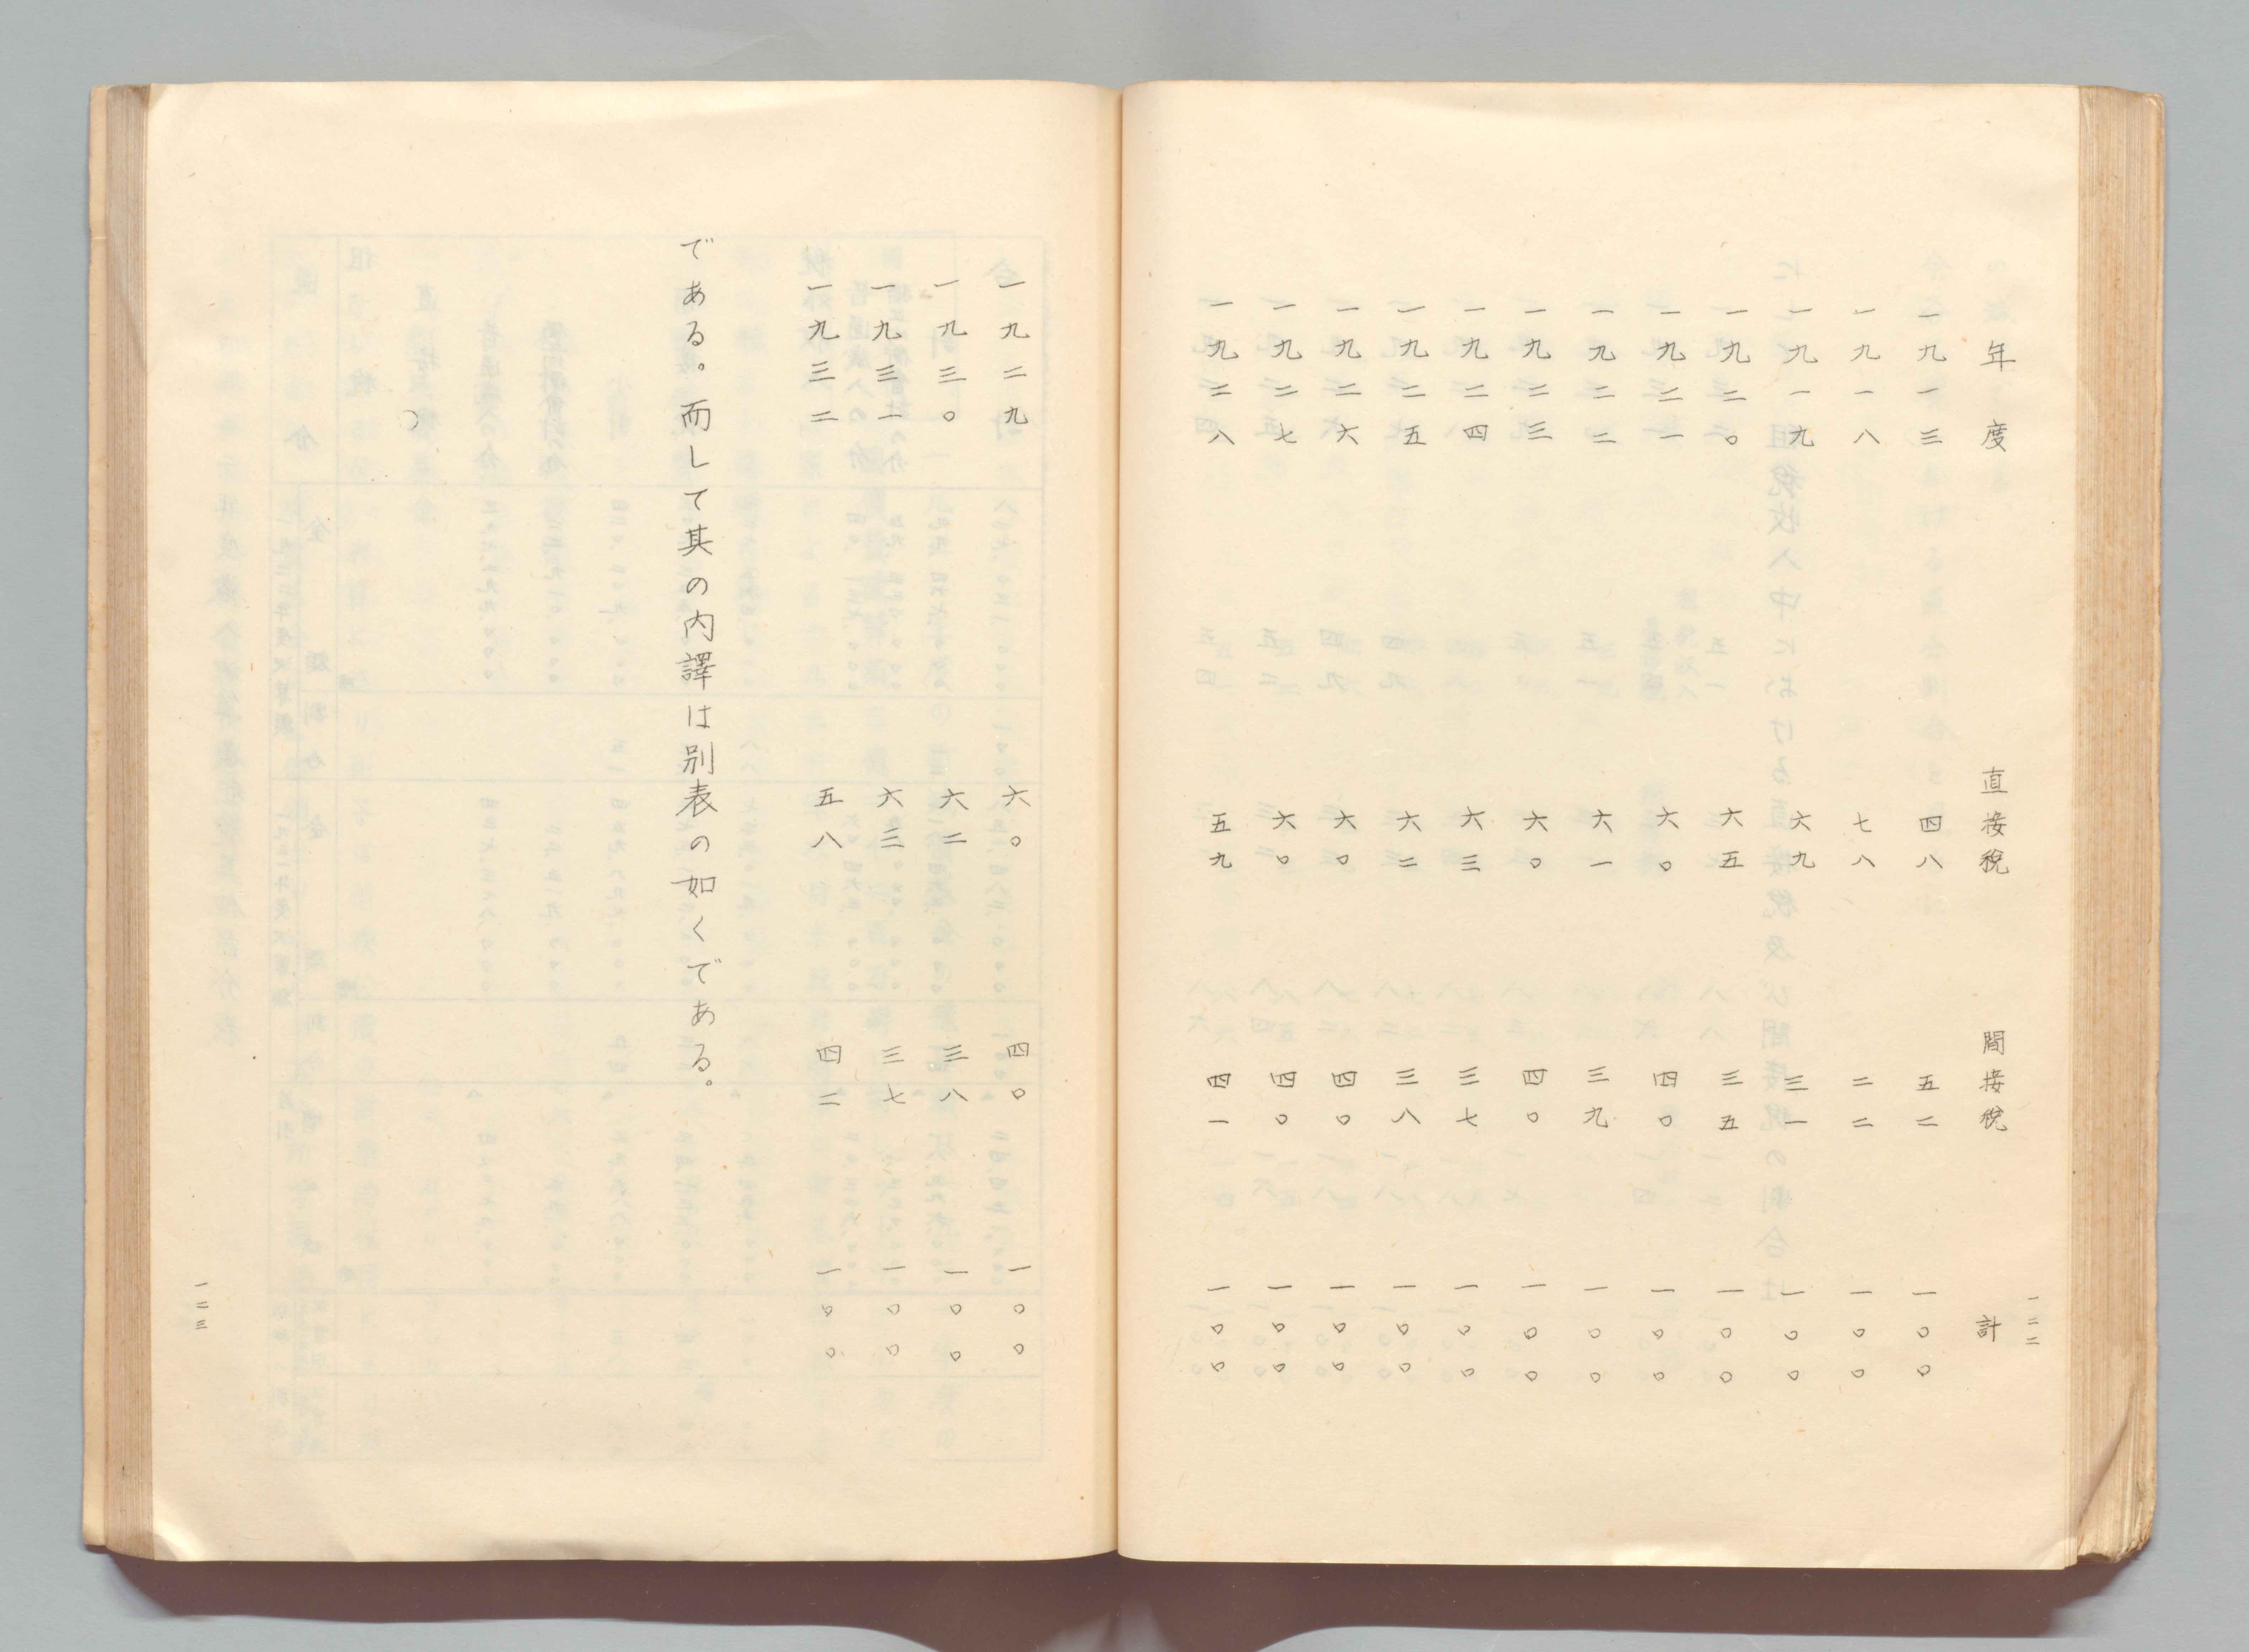 一二二
年度 直接税 間接税 計
一九一三 四八 五二 一〇〇
一九一八 七八 二二 一〇〇
一九一九 六九 三一 一〇〇
一九二〇 六五 三五 一〇〇
一九二一 六〇 四〇 一〇〇
一九二二 六一 三九 一〇〇
一九二三 六〇 四〇 一〇〇
一九二四 六三 三七 一〇〇
一九二五 六二 三八 一〇〇
一九二六 六〇 四〇 一〇〇
一九二七 六〇 四〇 一〇〇
一九二八 五九 四一 一〇〇
一九二九 六〇 四〇 一〇〇
一九三〇 六二 三八 一〇〇
一九三一 六三 三七 一〇〇
一九三二 五八 四二 一〇〇
である。而して其の内譯は別表の如くである。
一二三